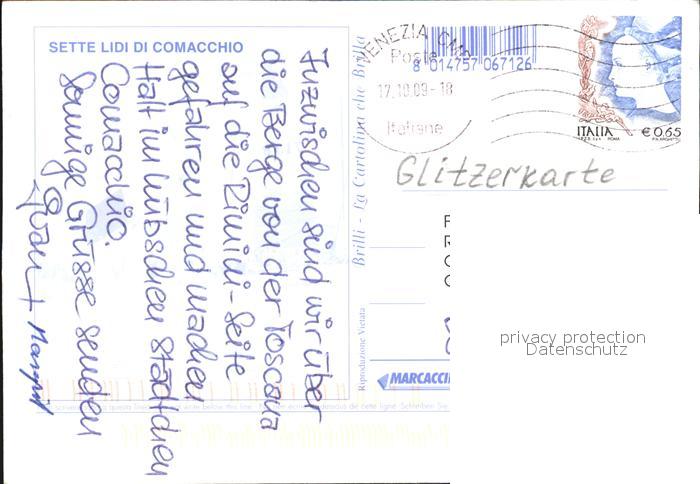 SETTE LIDI DI COMACCHIO
Inzwischen sind wir über
die Berge von der Toscana
auf die Rimini-Seite
gefahren und machen
Halt im hübschen Städtchen
Comacchio.
Sonnige Grüsse senden
Brilli - La Cartolina che Brilla
Riproduzione Vietata
MARCACCI
VENEZIA
Poste
17.10.09 - 18
Italiane
8 014757 067126
ITALIA
€ 0,65
I.P.Z.S. S.p.A. ROMA
Glitzerkarte
privacy protection
Datenschutz